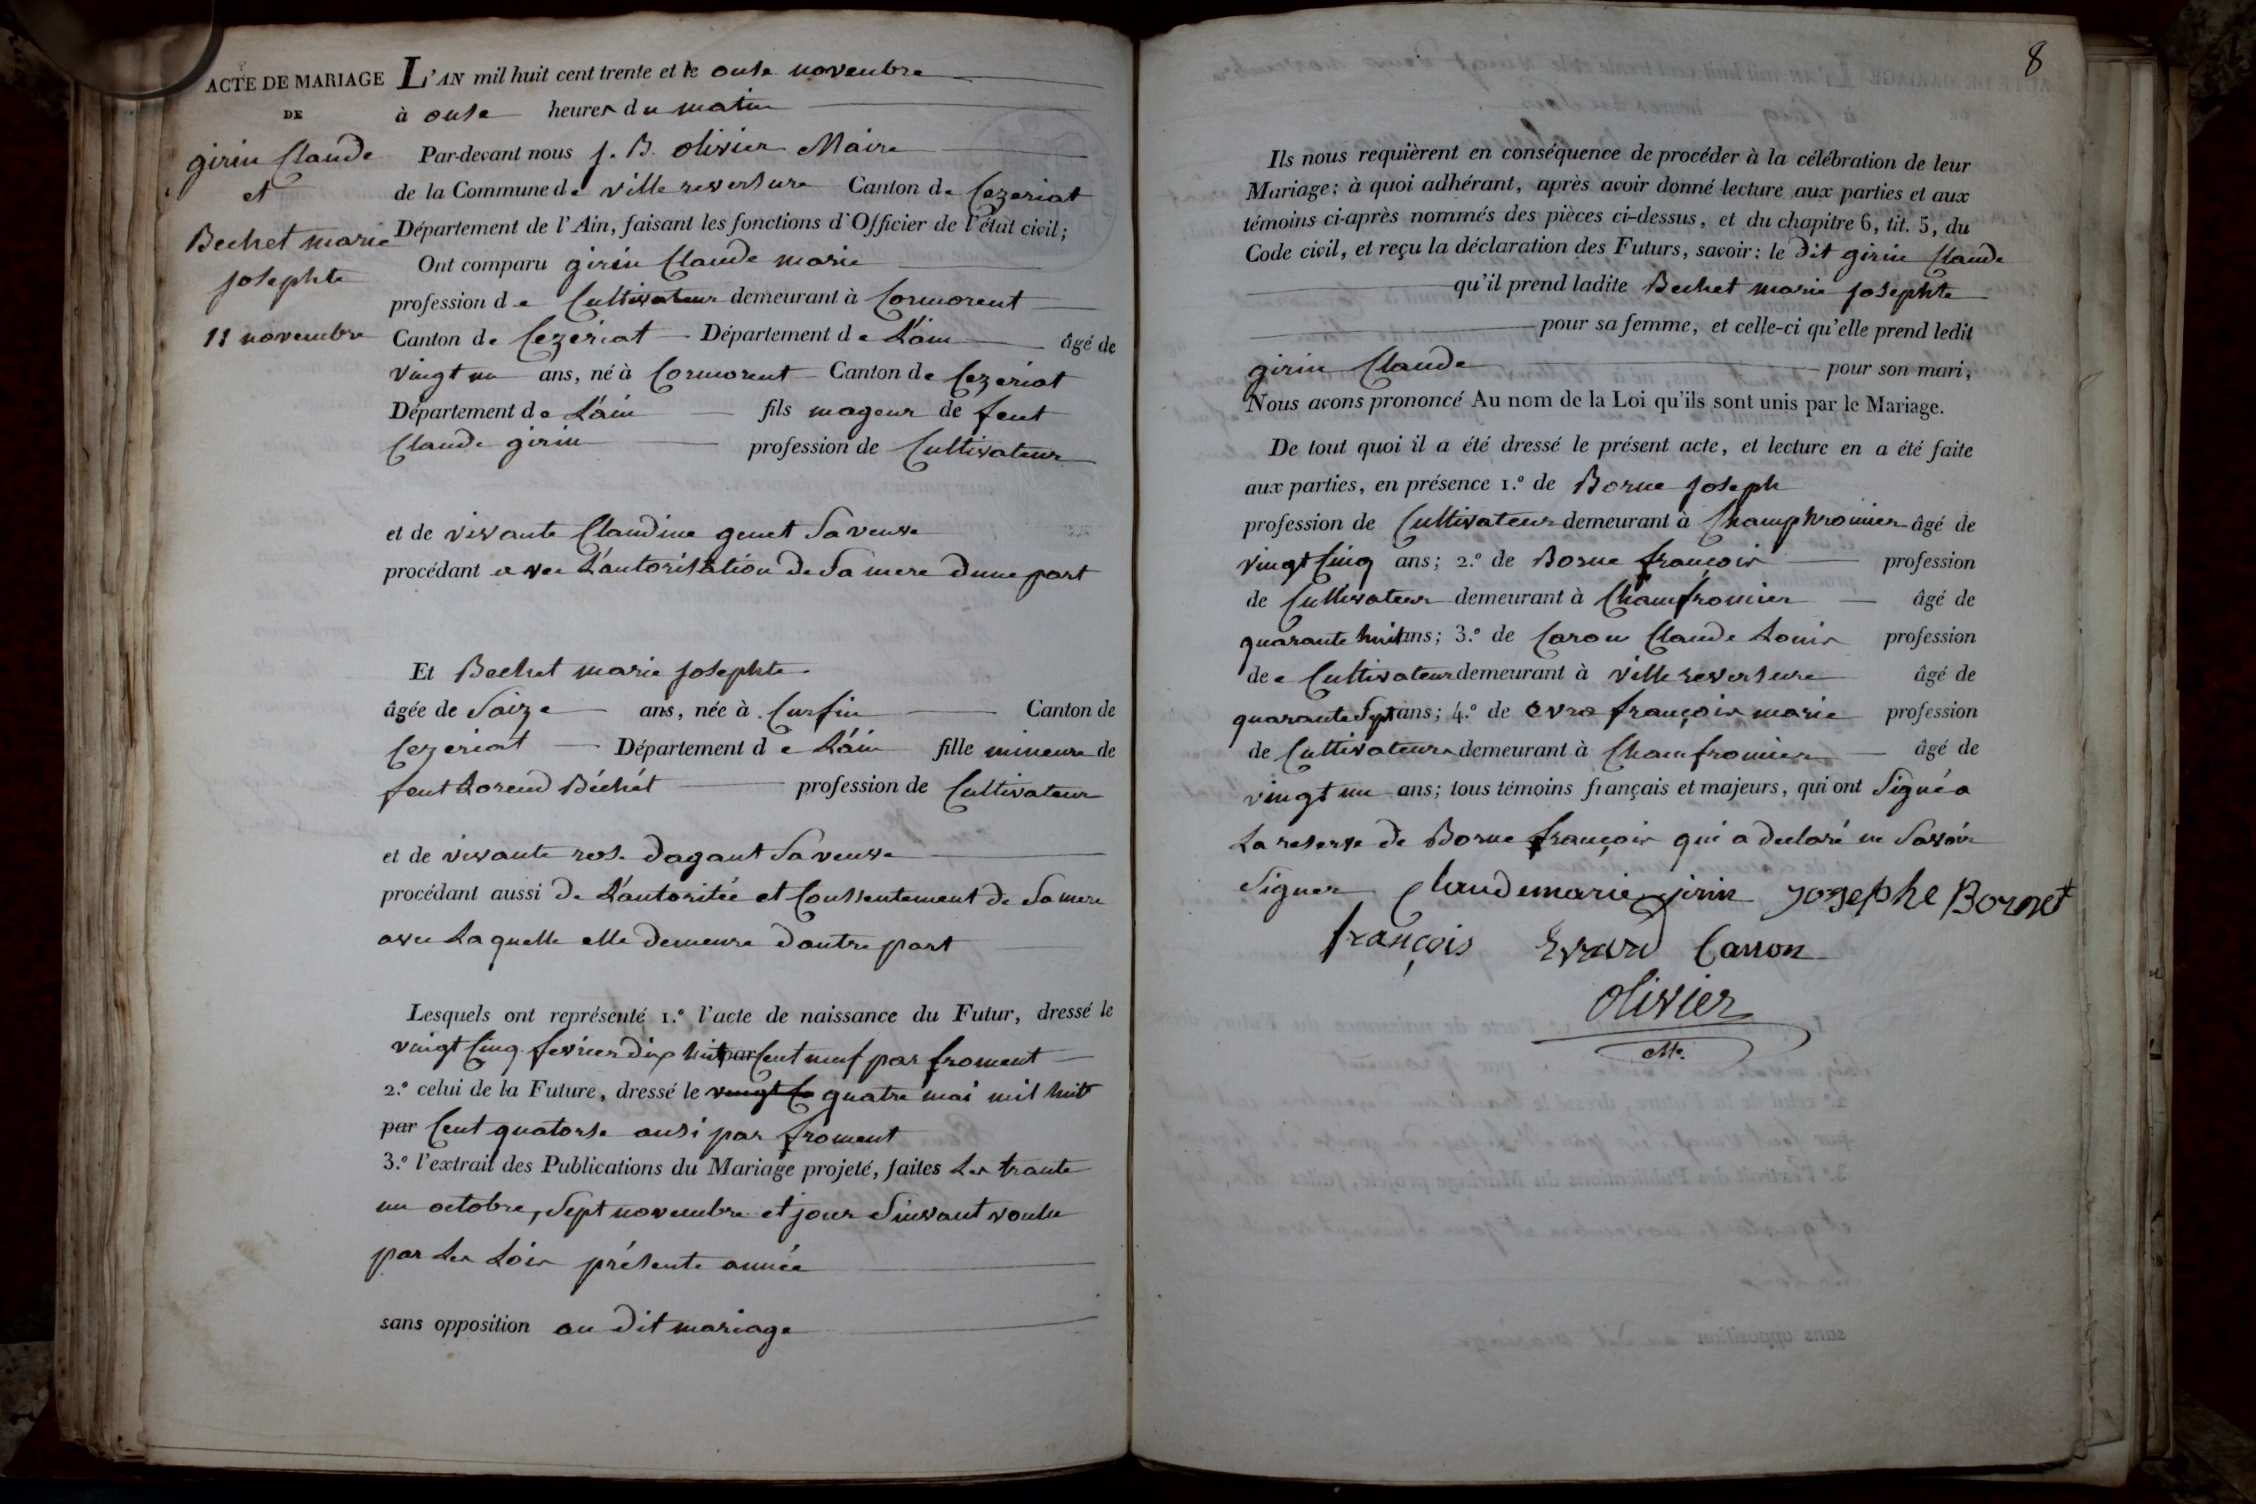 ACTE DE MARIAGE
DE
girin Claude
et
Bechet marie
josephte
11 novembre
L'AN mil huit cent trente et le onse novembre
à onse heures du matin
Par-devant nous j. B. olivier Maire
de la Commune de ville reversure Canton de Cezeriat
Département de l'Ain, faisant les fonctions d'Officier de l'état civil;
Ont comparu girin Claude marie
profession de Cultivateur demeurant à Cormorent
Canton de Cezeriat Département de L'ain âgé de
vingt un ans, né à Cormorent Canton de Cezeriat
Département de L'ain fils mageur de feut
Claude girin profession de Cultivateur
et de vivante Claudine genet Sa veuve
procédant avec L'autorisation de Sa mere dune part
Et Bechet marie josephte
âgée de Saize ans, née à Curfin Canton de
Cezeriat Département de L'ain fille mineure de
feut Lorend Béchét profession de Cultivateur
et de vivante rose dagant Sa veuve
procédant aussi de L'autoritée et Consentement de Sa mere
avec Laquelle elle demeure dautre part
Lesquels ont représenté 1.º l'acte de naissance du Futur, dressé le
vingt Cinq fevrier dix huit par Cent neuf par froment
2.º celui de la Future, dressé le vingt C quatre mai mil huit
par Cent quatorse ausi par froment
3.º l'extrait des Publications du Mariage projeté, faites Les trante
un octobre, Sept novembre et jour Suivant voulu
par Les Lois présente année
sans opposition au dit mariage
8
Ils nous requièrent en conséquence de procéder à la célébration de leur
Mariage; à quoi adhérant, après avoir donné lecture aux parties et aux
témoins ci-après nommés des pièces ci-dessus, et du chapitre 6, tit. 5, du
Code civil, et reçu la déclaration des Futurs, savoir: le dit girin Claude
qu'il prend ladite Bechet marie josephte
pour sa femme, et celle-ci qu'elle prend ledit
girin Claude pour son mari,
Nous avons prononcé Au nom de la Loi qu'ils sont unis par le Mariage.
De tout quoi il a été dressé le présent acte, et lecture en a été faite
aux parties, en présence 1.º de Borne joseph
profession de Cultivateur demeurant à Champhromier âgé de
vingt Cinq ans; 2.º de Borne françois profession
de Cultivateur demeurant à Chamfromier âgé de
quarante huit ans; 3.º de Caron Claude Louis profession
de Cultivateur demeurant à ville reversure âgé de
quarante Sept ans; 4.º de evra françois marie profession
de Cultivateur demeurant à Chamfromier âgé de
vingt un ans; tous témoins français et majeurs, qui ont Signé a
La reserve de Borne françois qui a declaré ne Savoir
Signer Claude marie girin josephe Bornet
françois Evrard Carron
olivier
Me.